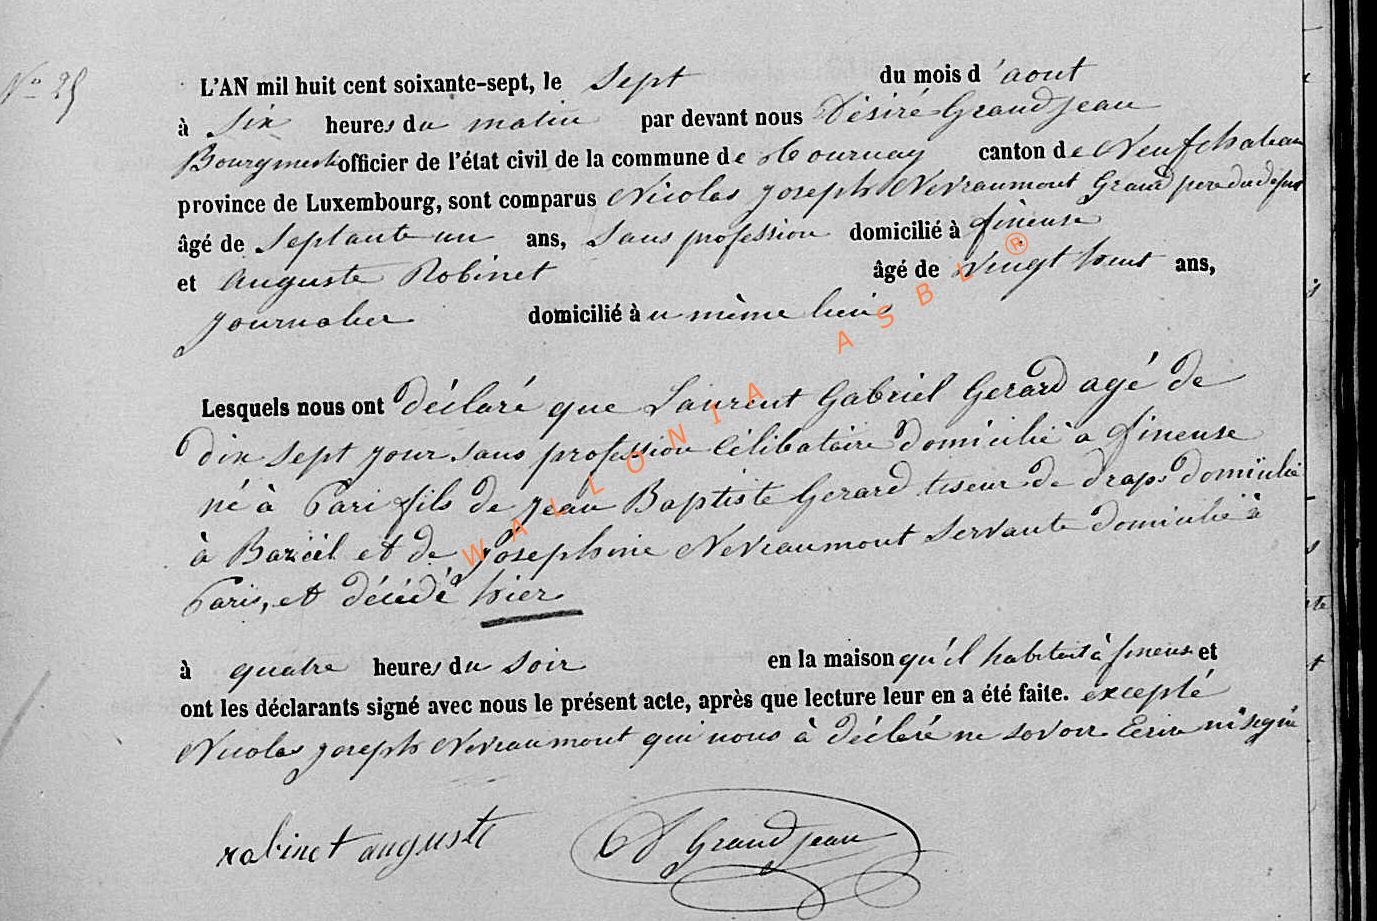 N° 25
L'AN mil huit cent soixante-sept, le Sept du mois d'aout
à Six heures du matin par devant nous Désiré Grandjean
Bourgmestre officier de l'état civil de la commune de Tournay canton de Neufchateau
province de Luxembourg, sont comparus Nicolas Joseph Nevraumont Grand pere du defunt
âgé de Septante un ans, Sans profession domicilié à fineuse
et Auguste Robinet âgé de vingt huit ans,
Journalier domicilié à u même lieu
Lesquels nous ont déclaré que Laurent Gabriel Gerard agé de
dix sept jour sans profession Célibataire domicilié a fineuse
né à Pari fils de Jean Baptiste Gerard tiseur de draps domicilié
à Bazeil et de Josephine Nevraumont Servante domicilié à
Paris, et décédé hier
à quatre heures du soir en la maison qu'il habitait à fineuse et
ont les déclarants signé avec nous le présent acte, après que lecture leur en a été faite. excepté
Nicolas Joseph Nevraumont qui nous à déclaré ne savoir Ecrire ni signé
robinet auguste D Grandjean
WALLONIA ASBL ®